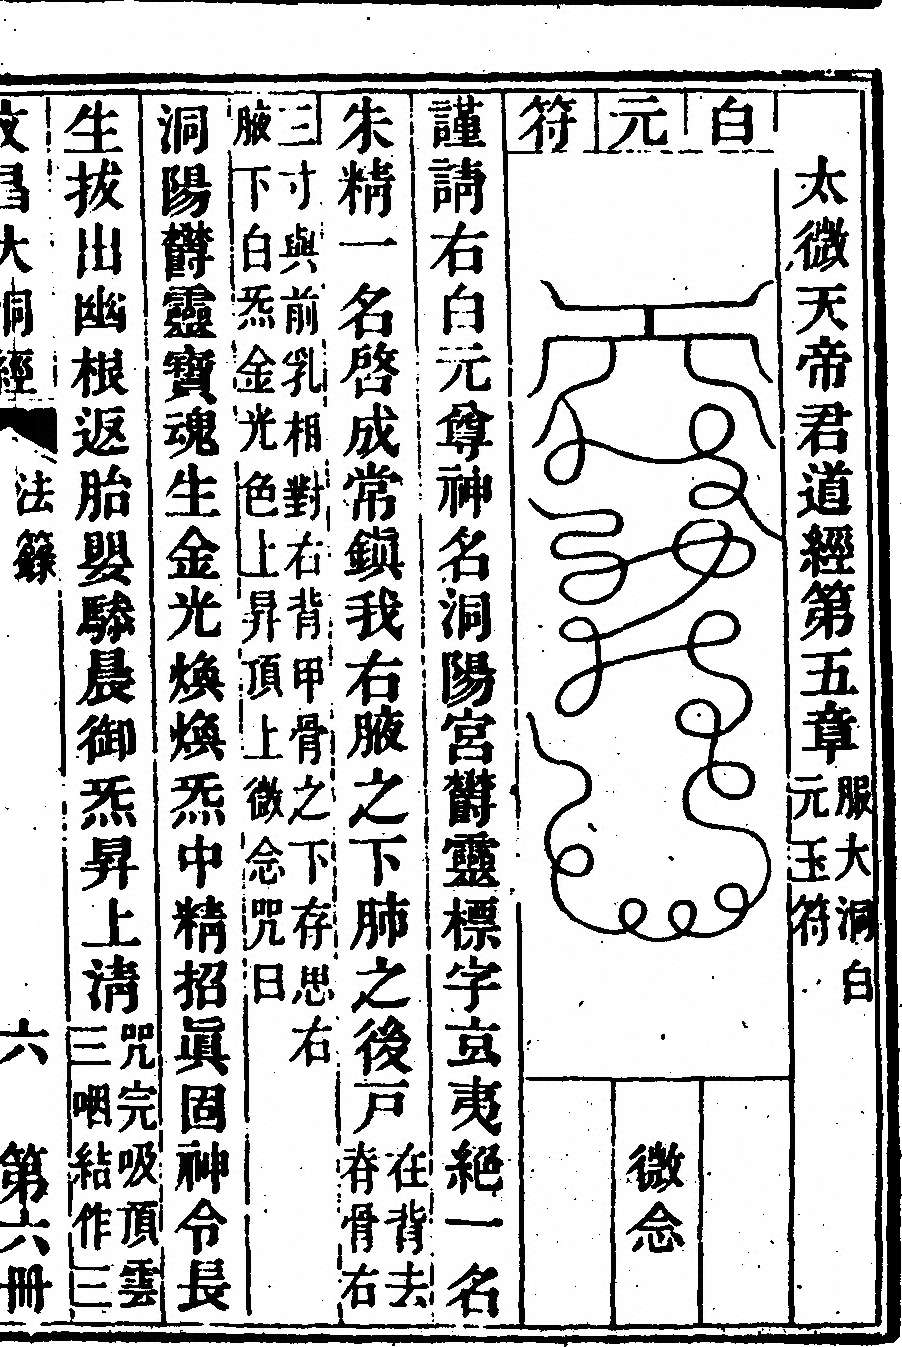 太微天帝君道經第五章服大洞白元玉符
白元符
微念
謹請右白元尊神名洞陽宮欝靈標字玄夷絕一名
朱精一名啓成常鎮我右腋之下肺之後戸在背去脊骨右
三寸與前乳相對右背甲骨之下存思右
腋下白炁金光色上昇頂上微念咒曰
洞陽欝靈寶魂生金光煥煥炁中精招眞固神令長
生拔出幽根返胎嬰驂晨御炁昇上淸咒完吸頂雲三咽結作三
文昌大洞經 法籙 六 第六冊